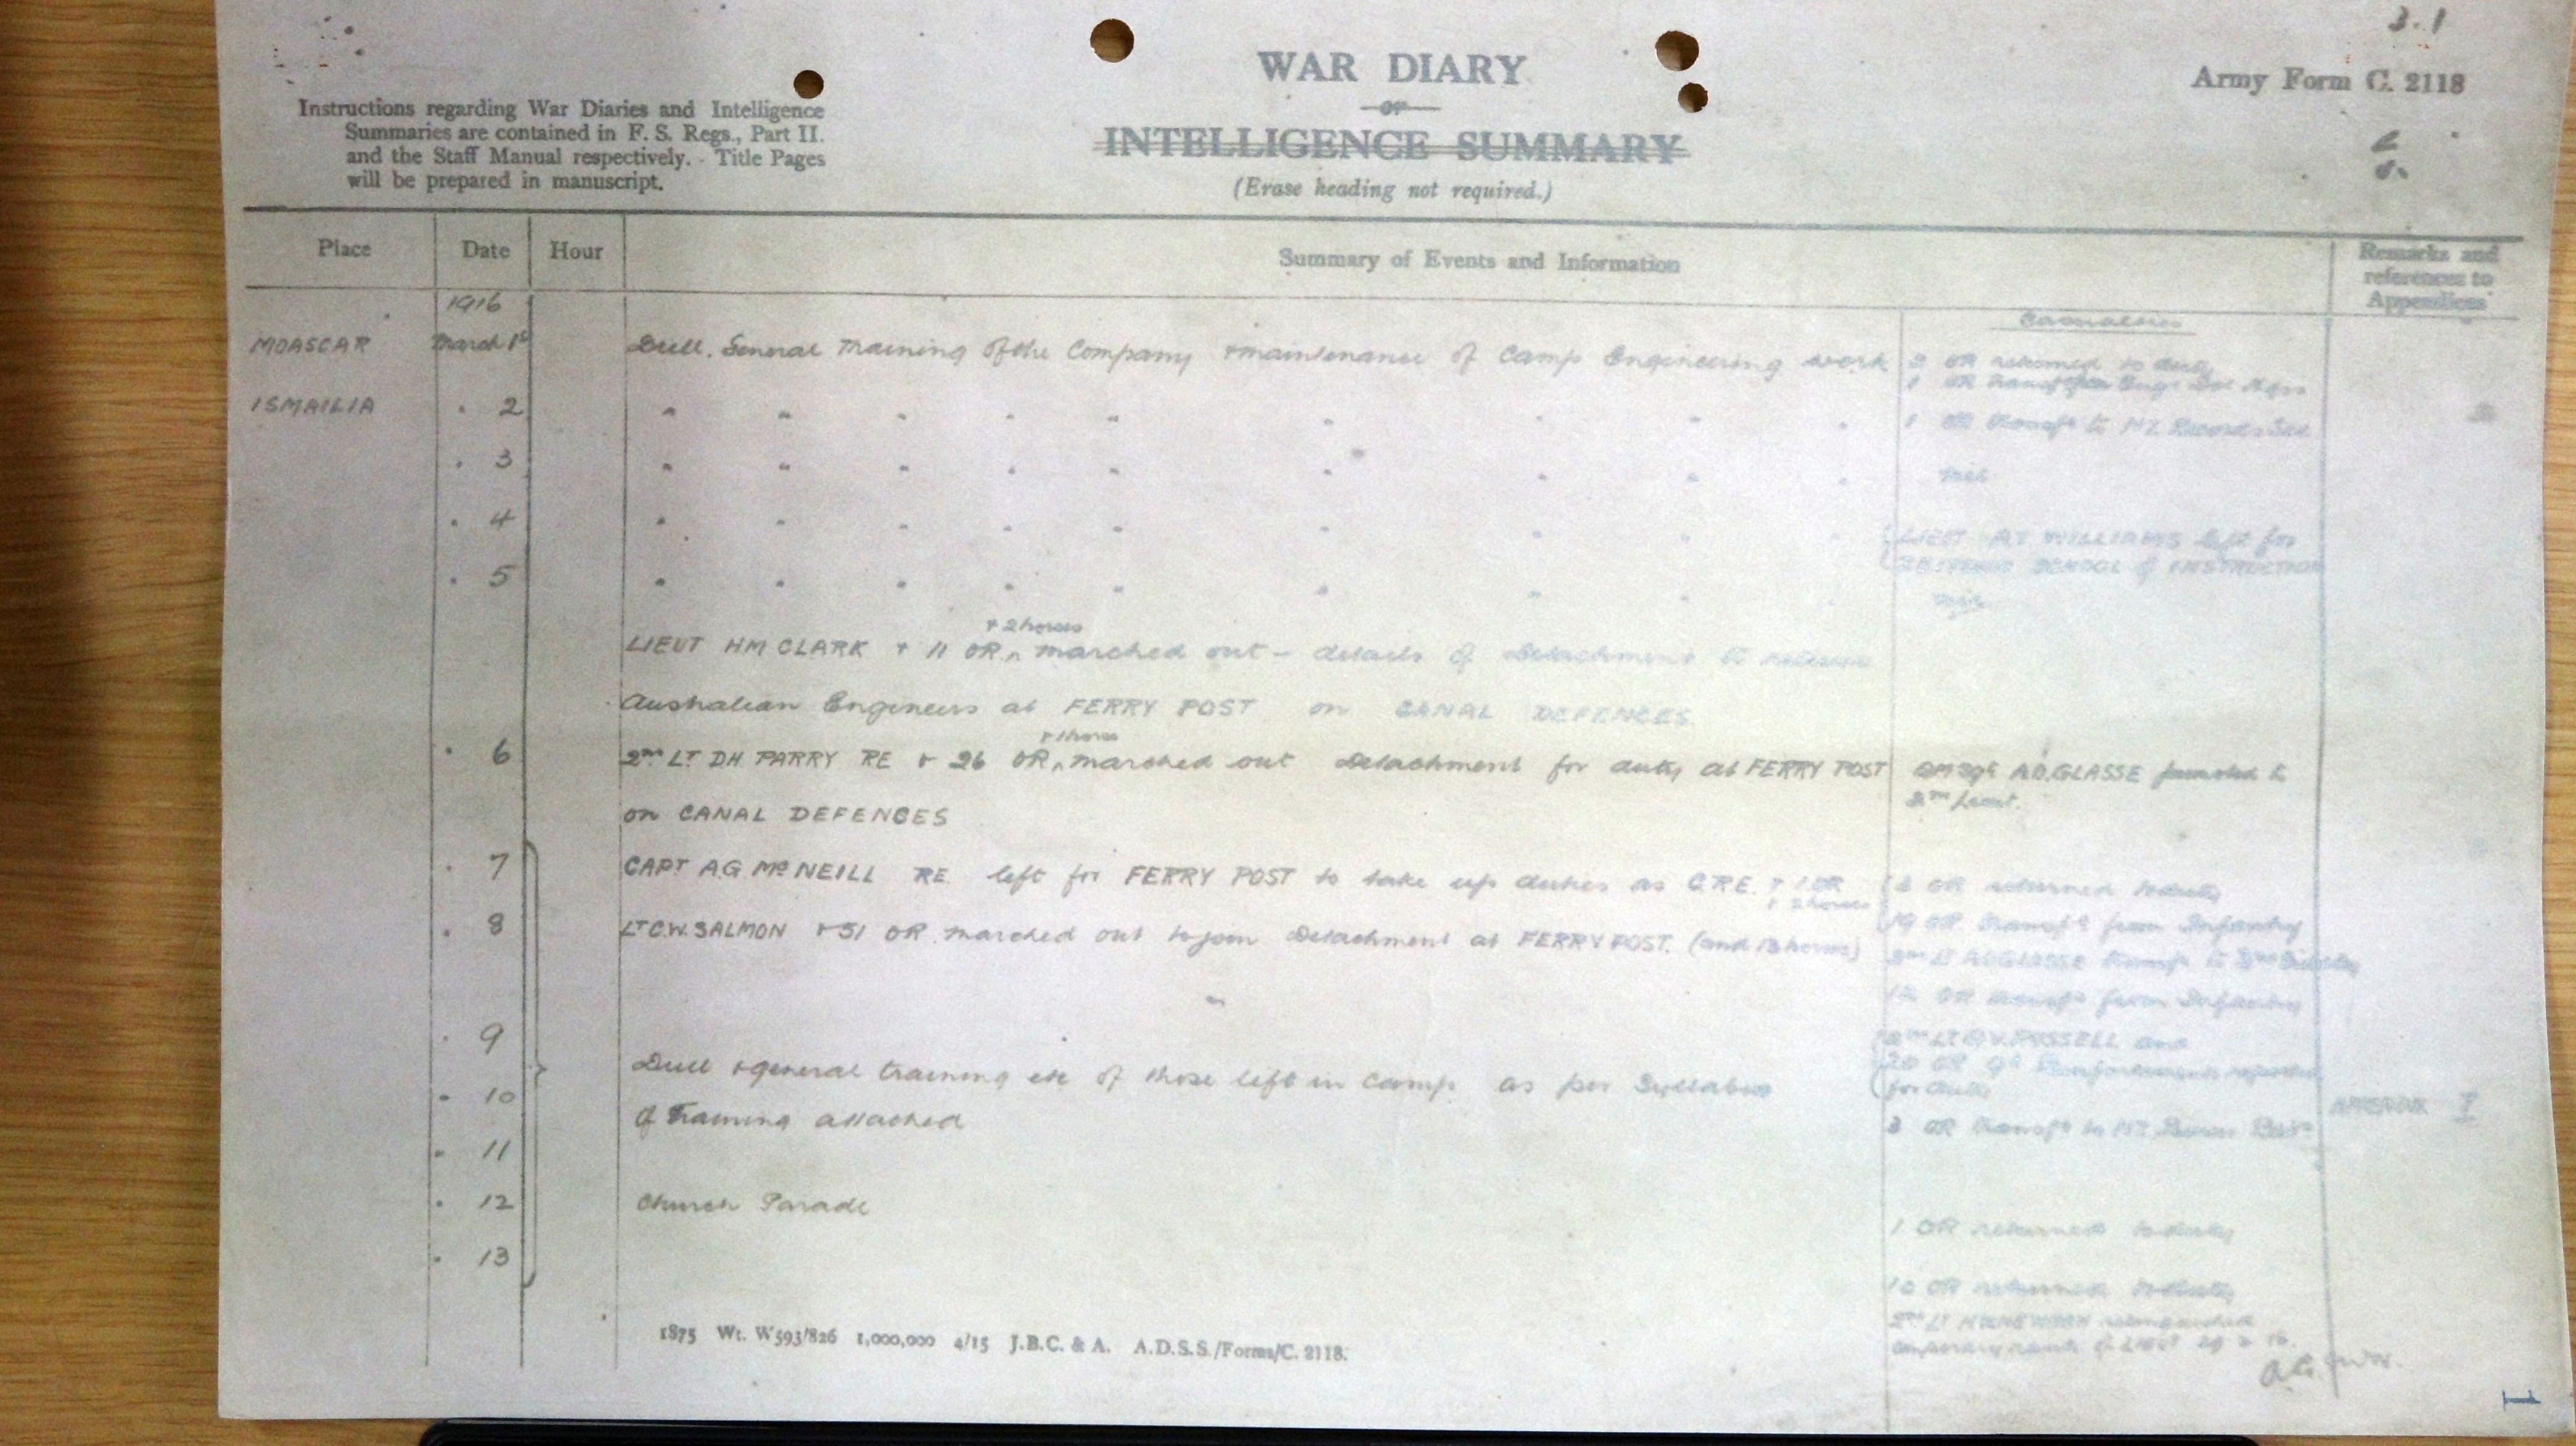 3.1
WAR DIARY
OR
INTELLIGENCE SUMMARY
(Erase heading not required.)
Army Form C. 2118
Instructions regarding War Diaries and Intelligence
Summaries are contained in F. S. Regs., Part II.
and the Staff Manual respectively. Title Pages
will be prepared in manuscript.
Place Date Hour Summary of Events and Information Remarks and
references to
Appendices
1916
Casualties
MOASCAR March 1st Drill. General Training of the Company & maintenance of Camp Engineering work OR returned to duty
1 OR
ISMAILIA " 2 " " " " " " " " " 1 OR transf'd to NZ Records
" 3 " " " " " " " " " nil
" 4 " " " " " " " " " LIEUT WILLIAMS left for
SCHOOL of INSTRUCTION
" 5 " " " " " " " " nil
+ 2 horses
LIEUT HM CLARK + 11 OR marched out - details of Detachment to relieve
Australian Engineers at FERRY POST on CANAL DEFENCES.
+ 1 horse
" 6 2nd LT DH PARRY RE + 26 OR marched out Detachment for duty at FERRY POST A.D. GLASSE promoted to
2nd Lieut.
on CANAL DEFENCES
" 7 CAPT A.G. McNEILL RE left for FERRY POST to take up duties as C.R.E. + 1 OR OR returned to duty
+ 2 horses
" 8 LT C.W. SALMON + 51 OR marched out to join Detachment at FERRY POST. (and 13 horses) 19 OR transf'd from Infantry
2nd Lt AD GLASSE transf to
OR transf'd from Infantry
" 9 2nd LT RUSSELL and
Drill & general training etc of those left in Camp as per Syllabus 20 OR Reinforcements reported
for duty
" 10 APPENDIX I
of Training attached OR transf'd to
" 11
" 12 Church Parade
1 OR returned to duty
" 13
10 OR returned to duty
2nd LT relinquished
temporary rank of LIEUT
1875 Wt. W593/826 1,000,000 4/15 J.B.C. & A. A.D.S.S./Forms/C. 2118.
1